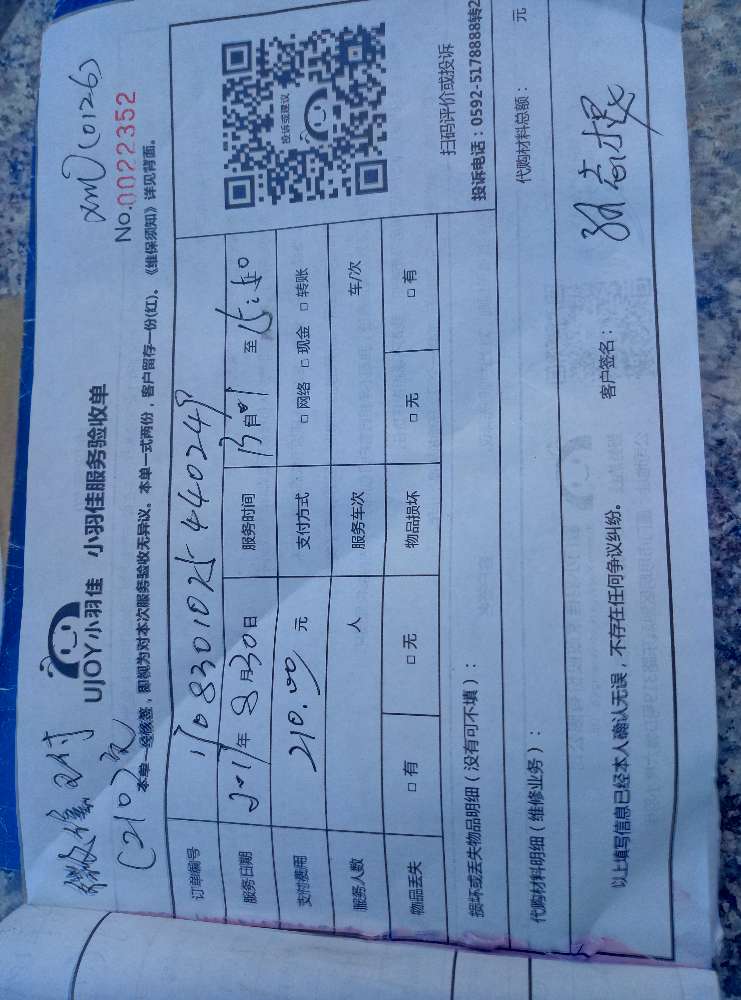 微信支付
(210元)
xmJ(0126)
UJOY小羽佳 小羽佳服务验收单
No.0022352
本单一经核签,即视为对本次服务验收无异议。本单一式两份,客户留存一份(红)。《维保须知》详见背面。
订单编号 170830102544024
服务日期 2017年8月30日 服务时间 自 至
支付费用 210.00 元 支付方式 □ 网络 □ 现金 □ 转账
服务人数 人 服务车次 车/次
物品丢失 □ 有 □ 无 物品损坏 □ 无 □ 有
投诉或建议
扫码评价或投诉
投诉电话:0592-5178888转2
损坏或丢失物品明细(没有可不填):
代购材料明细(维修业务): 代购材料总额: 元
以上填写信息已经本人确认无误,不存在任何争议纠纷。 客户签名: